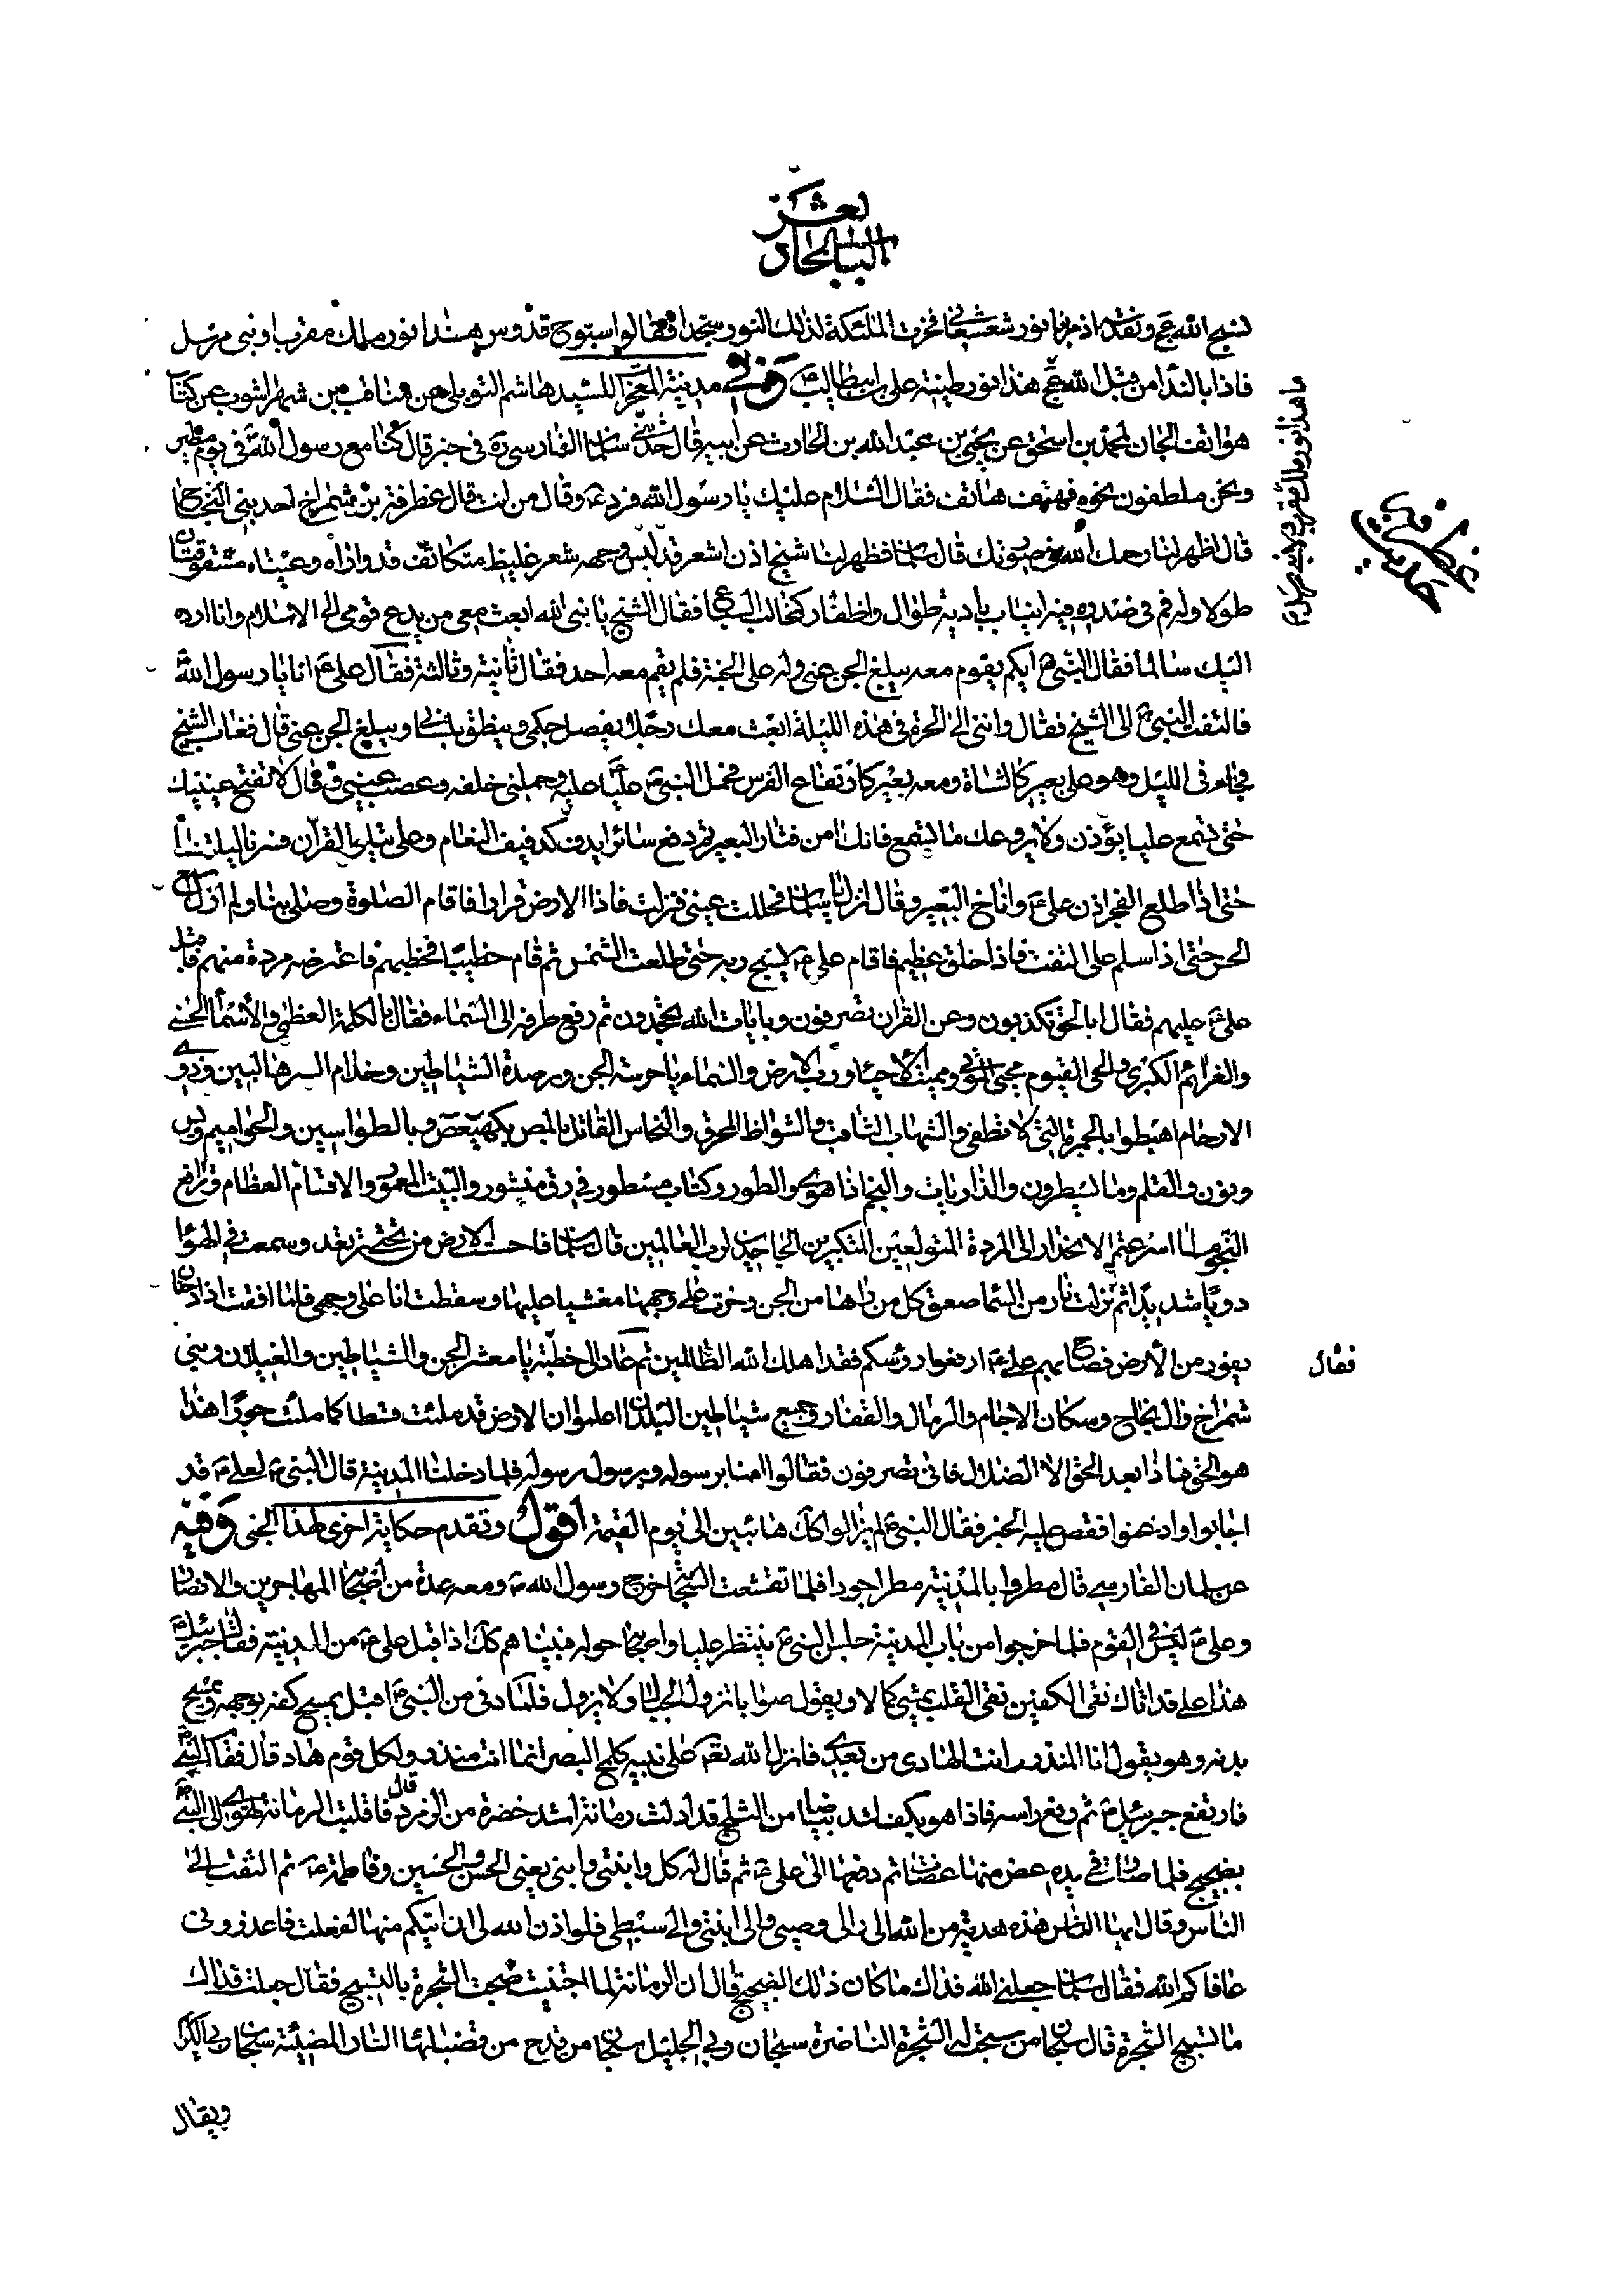 الباب الحادي عشر
نسبح الله عج ونقدسه اذ مر بنا نور شعشعاني فخرت الملئكة لذلك النور سجدا فقالوا سبوح قدوس هذا نور ملك مقرب او نبي مرسل
فاذا بالندا من قبل الله عج هذا نور طينة علي بن ابيطالب ع وفي مدينة المعجز للسيد هاشم التوبلي عن مناقب بن شهراشوب عن كتاب
هواتف الجان لمحمد بن اسحق عن يحيى بن عبد الله بن الحارث عن ابيه قال حدثني سلمان الفارسي ره في خبر قال كنا مع رسول الله ص في يوم مطير
ونحن ملطفون نحوه فهتف هاتف فقال السلام عليك يا رسول الله فرد ع وقال من انت قال عظرفة بن شمراخ احد بني النجاح
قال اظهر لنا رحمك الله في صورتك قال سلمان فظهر لنا شيخ اذن اشعر قد لبس وجهه شعر غليظ متكاثف قد واراه وعيناه مشقوقتان
طولا وله فم في صدره فيه انياب بادية طوال واظفار كمخالب السباع فقال الشيخ يا نبي الله ابعث معي من يدع قومي الى الاسلام وانا ارده
اليك سالما فقال النبي ص ايكم يقوم معه يبلغ الجن عني وله علي الجنة فلم يقم معه احد فقال ثانية وثالثة فقال علي ع انا يا رسول الله ص
فالتفت النبي ص الى الشيخ فقال وافني الى الحرة في هذه الليلة ابعث معك رجلا يفصل حكمي وينطق بلساني ويبلغ الجن عني قال فغاب الشيخ
فجاء في الليل وهو على بعير كالشاة ومعه بعير كارتفاع الفرس فحمل النبي ص عليا عليه وحملني خلفه وعصب عيني وقال لا تفتح عينيك
حتى تسمع عليا يؤذن ولا يروعك ما تسمع فانك امن فثار البعير ثم دفع سائرا يدف كدفيف النعام وعلي يتلو القرآن فسرنا ليلتنا
حتى اذا طلع الفجر اذن علي ع واناخ البعير وقال انزل يا سلمان فحللت عيني فنزلت فاذا الارض قوراء فاقام الصلوة وصلى بنا ولم ازل اسمع
الحس حتى اذا سلم علي التفت فاذا خلق عظيم فاقام علي ع يسبح ربه حتى طلعت الشمس ثم قام خطيبا فخطبهم فاعترضه مردة منهم فاقبل
علي ع عليهم فقال ابالحق تكذبون وعن القران تصرفون وبايات الله تجحدون ثم رفع طرفه الى السماء فقال بالكلمة العظمى والأسماء الحسنى
والعزائم الكبرى والحي القيوم محيي الموتى ومميت الاحياء ورب الارض والسماء يا حرسة الجن ورصدة الشياطين وخدام السرهاليين وذوي
الارحام اهبطوا بالجمرة التي لا تطفى والشهاب الثاقب والشواظ المحرق والنحاس القاتل بالمص بكهيعص وبالطواسين والحواميم ويس
ونون والقلم وما يسطرون والذاريات والنجم اذا هوى والطور وكتاب مسطور في رق منشور والبيت المعمور والاقسام العظام ومواقع
النجوم لما اسرعتم الانحدار الى المردة المتولعين المتكبرين الجاحدين لرب العالمين قال سلمان فاحسست الارض من تحتي ترتعد وسمعت في الهواء
دويا شديدا ثم نزلت نار من السماء صعق كل من راها من الجن وخرت على وجهها مغشيا عليها وسقطت انا على وجهي فلما افقت اذا دخان
يفور من الأرض فصاح بهم علي ع ارفعوا رؤسكم فقد اهلك الله الظالمين ثم عاد الى خطبة يا معشر الجن والشياطين والغيلان وبني
شمراخ وال نجاح وسكان الاجام والرمال والقفار وجميع شياطين البلدان اعلموا ان الارض قد ملئت قسطا كما ملئت جورا هذا
هو الحق فماذا بعد الحق الا الضلال فانى تصرفون فقالوا امنا برسوله وبرسول رسوله فلما دخلنا المدينة قال النبي ص لعلي ع قد
اجابوا واذعنوا فقص عليه الخبر فقال النبي ص لم يزالوا كك هائبين الى يوم القيمة اقول وتقدم حكاية اخرى لهذا الجني وفيه
عن سلمان الفارسي قال مطروا بالمدينة مطرا جودا فلما تقشعت السحاب خرج رسول الله ص ومعه عدة من اصحابه المهاجرين والانصار
وعلي ع ليس في القوم فلما خرجوا من باب المدينة جلس النبي ص ينتظر عليا واصحابه حوله فبينا هم كك اذ اقبل علي ع من المدينة فقال جبرئيل ع
هذا علي قد اتاك نقي الكفين نقي القلب يمشي كمالا ويقول صوابا تزول الجبال ولا يزول فلما دنى من النبي ص اقبل يمسح كفه بوجهه ويمسح
بدنه وهو يقول انا المنذر وانت الهادي من بعدي فانزل الله تعه على نبيه كلمح البصر انما انت منذر ولكل قوم هاد قال فقام النبي ص
فارتفع جبرئيل ع ثم رفع راسه فاذا هو بكف اشد بياضا من الثلج قد ادلت رمانة اشد خضرة من الزمرد قال فاقبلت الرمانة تهوي الى النبي ص
بضجيج فلما صارت في يده عض منها عضات ثم دفعها الى علي ع ثم قال له كل وابنتي وابني يعني الحسن والحسين وفاطمة ع ثم التفت الى
الناس وقال ايها الناس هذه هدية من الله الي والى وصيي والى ابنتي والى سبطي فلو اذن الله لي ان اتيكم منها لفعلت فاعذروني
عافاكم الله فقال سلمان جعلني الله فداك ما كان ذلك الضجيج قال ان الرمانة لما اجتنيت ضجت الشجرة بالتسبيح فقال جعلت فداك
ما تسبيح الشجرة قال سبحان من سبحت له الشجرة الناضرة سبحان ربي الجليل سبحان من قدح من قضبانها النار المضيئة سبحان ربي الكريم
ويقال
ما هذا نور ملك مقرب ولا نبي مرسل
فقال